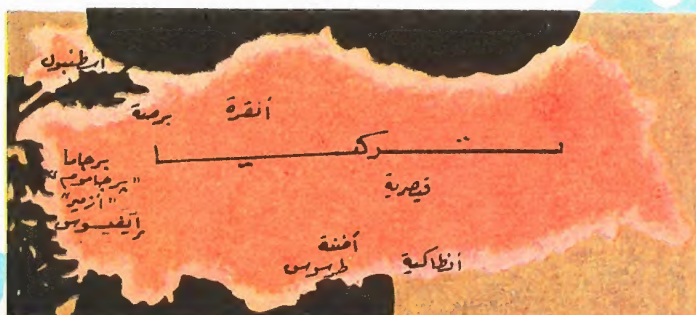 اسطنبول
برصة
أنقرة
تركيا
برجاما
"برجاموم"
"أزمير"
إيفيسوس
قيصرية
أضنة
طرسوس
أنطاكية